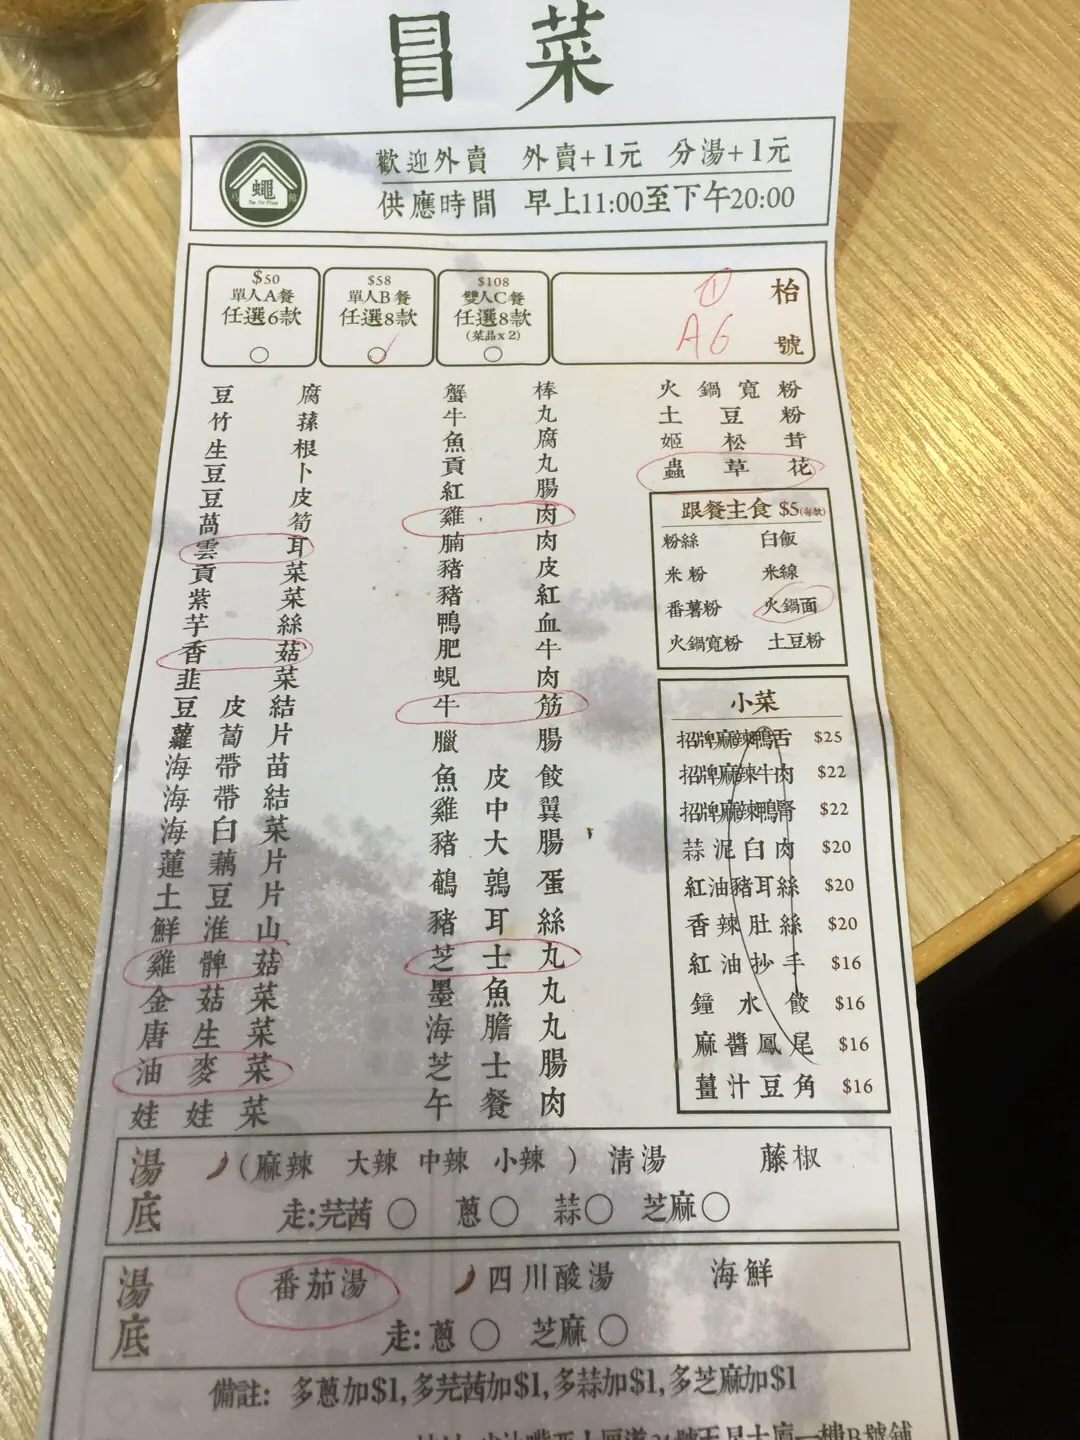 冒菜
蠅
歡迎外賣 外賣+1元 分湯+1元
供應時間 早上11:00至下午20:00
$50
單人A餐
任選6款
$58
單人B餐
任選8款
$108
雙人C餐
任選8款
(菜品x2)
枱號
① A6
豆腐
竹蓀
生根
豆卜
豆皮
萵筍
雲耳
貢菜
紫菜
芋絲
香菇
韭菜
豆皮結
蘿蔔片
海帶苗
海帶結
海白菜
蓮藕片
土豆片
鮮淮山
雞髀菇
金菇菜
唐生菜
油麥菜
娃娃菜
蟹棒
牛丸
魚腐
貢丸
紅腸
雞肉
腩肉
豬皮
豬紅
鴨血
肥牛
蜆肉
牛筋
臘腸
魚皮餃
雞中翼
豬大腸
鵪鶉蛋
豬耳絲
芝士丸
墨魚丸
海膽丸
芝士腸
午餐肉
火鍋寬粉
土豆粉
姬松茸
蟲草花
跟餐主食 $5(每款)
粉絲 白飯
米粉 米線
番薯粉 火鍋面
火鍋寬粉 土豆粉
小菜
招牌麻辣鴨舌 $25
招牌麻辣牛肉 $22
招牌麻辣鴨腎 $22
蒜泥白肉 $20
紅油豬耳絲 $20
香辣肚絲 $20
紅油抄手 $16
鐘水餃 $16
麻醬鳳尾 $16
薑汁豆角 $16
湯底 (麻辣 大辣 中辣 小辣) 清湯 藤椒
走:芫茜 ○ 蔥 ○ 蒜 ○ 芝麻 ○
湯底 番茄湯 四川酸湯 海鮮
走:蔥 ○ 芝麻 ○
備註: 多蔥加$1,多芫茜加$1,多蒜加$1,多芝麻加$1